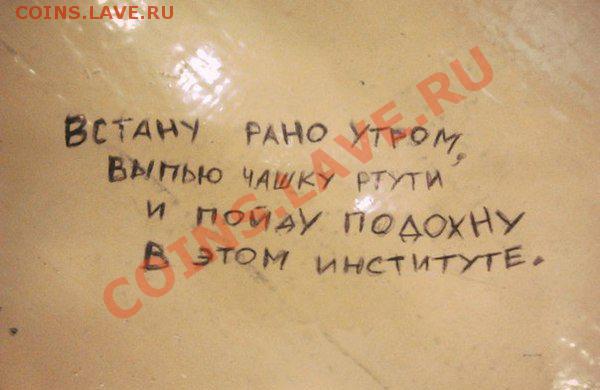 COINS.LAVE.RU
ВСТАНУ РАНО УТРОМ,
ВЫПЬЮ ЧАШКУ РТУТИ
И ПОЙДУ ПОДОХНУ
В ЭТОМ ИНСТИТУТЕ.
COINS.LAVE.RU
COINS.LAVE.RU